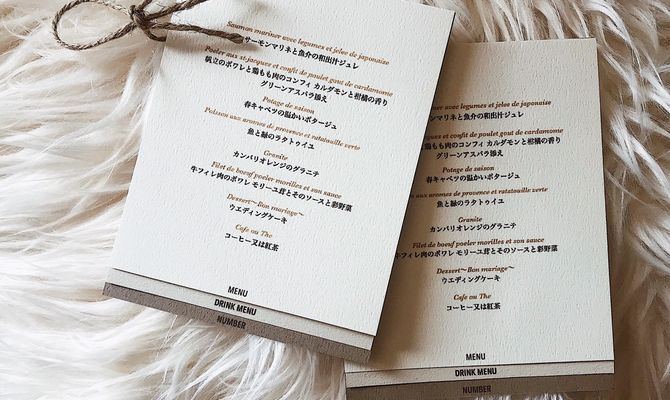 Saumon mariner avec legumes et jelee de japonaise
サーモンマリネと魚介の和出汁ジュレ
Poeler aux st-jacques et confit de poulet gout de cardamome
帆立のポワレと鶏もも肉のコンフィ カルダモンと柑橘の香り
グリーンアスパラ添え
Potage de saison
春キャベツの温かいポタージュ
Poisson aux aromes de provence et ratatouille verte
魚と緑のラタトゥイユ
Granite
カンパリオレンジのグラニテ
Filet de boeuf poeler morilles et son sauce
牛フィレ肉のポワレ モリーユ茸とそのソースと彩野菜
Dessert〜Bon mariage〜
ウエディングケーキ
Cafe ou The
コーヒー又は紅茶
MENU
DRINK MENU
NUMBER
avec legumes et jelee de japonaise
ンマリネと魚介の和出汁ジュレ
et confit de poulet gout de cardamome
鶏もも肉のコンフィ カルダモンと柑橘の香り
グリーンアスパラ添え
Potage de saison
春キャベツの温かいポタージュ
aux aromes de provence et ratatouille verte
魚と緑のラタトゥイユ
Granite
カンパリオレンジのグラニテ
Filet de boeuf poeler morilles et son sauce
フィレ肉のポワレ モリーユ茸とそのソースと彩野菜
Dessert〜Bon mariage〜
ウエディングケーキ
Cafe ou The
コーヒー又は紅茶
MENU
DRINK MENU
NUMBER